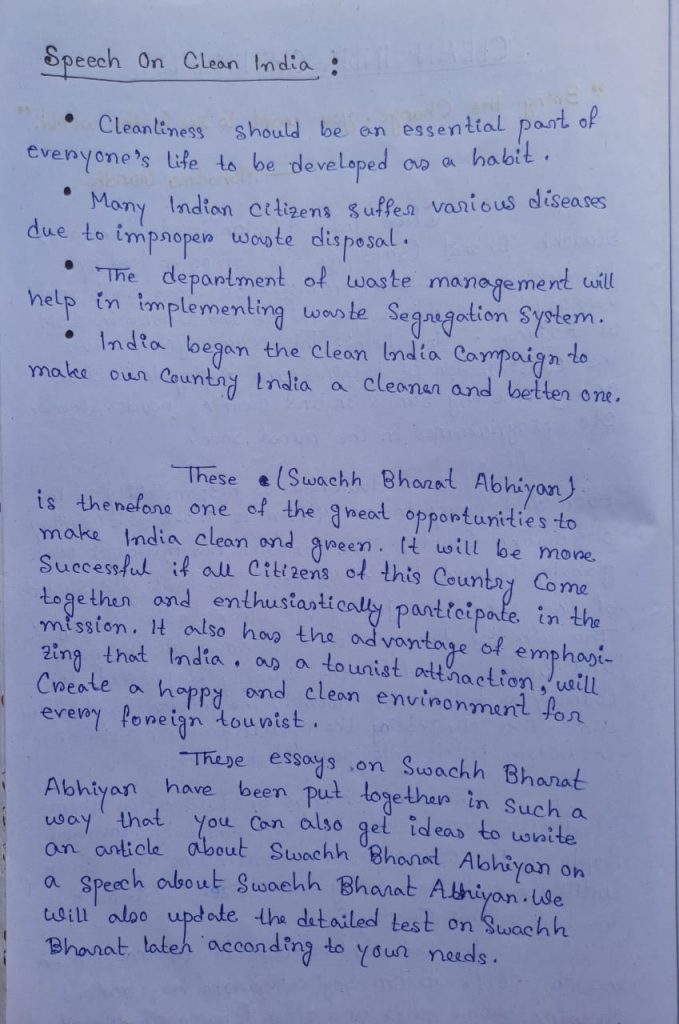 Speech On Clean India :
• Cleanliness should be an essential part of
everyone's life to be developed as a habit.
• Many Indian Citizens suffer various diseases
due to improper waste disposal.
• The department of waste management will
help in implementing waste Segregation System.
• India began the Clean India Campaign to
make our Country India a cleaner and better one.
These (Swachh Bharat Abhiyan)
is therefore one of the great opportunities to
make India clean and green. It will be more
Successful if all Citizens of this Country Come
together and enthusiastically participate in the
mission. It also has the advantage of emphasi-
zing that India, as a tourist attraction, will
Create a happy and clean environment for
every foreign tourist.
These essays on Swachh Bharat
Abhiyan have been put together in Such a
way that you can also get ideas to write
an article about Swachh Bharat Abhiyan or
a speech about Swachh Bharat Abhiyan. We
will also update the detailed test on Swachh
Bharat later according to your needs.